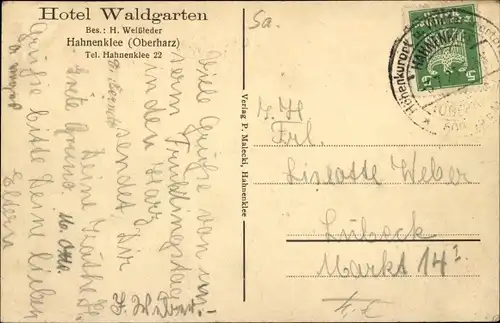 Hotel Waldgarten
Bes.: H. Weißleder
Hahnenklee (Oberharz)
Tel. Hahnenklee 22
Viele Grüße von un-
serm Frühlingstag
in den Harz
sendet Dir
Deine Käthe H.
Grüße bitte Deine lieben
Eltern
M. Otto
H. Weber.-
Verlag P. Malecki, Hahnenklee
Sa.
Höhenkurort
HAHNENKLEE
5
5
Frl.
Liselotte Weber
Lübeck
Markt 14